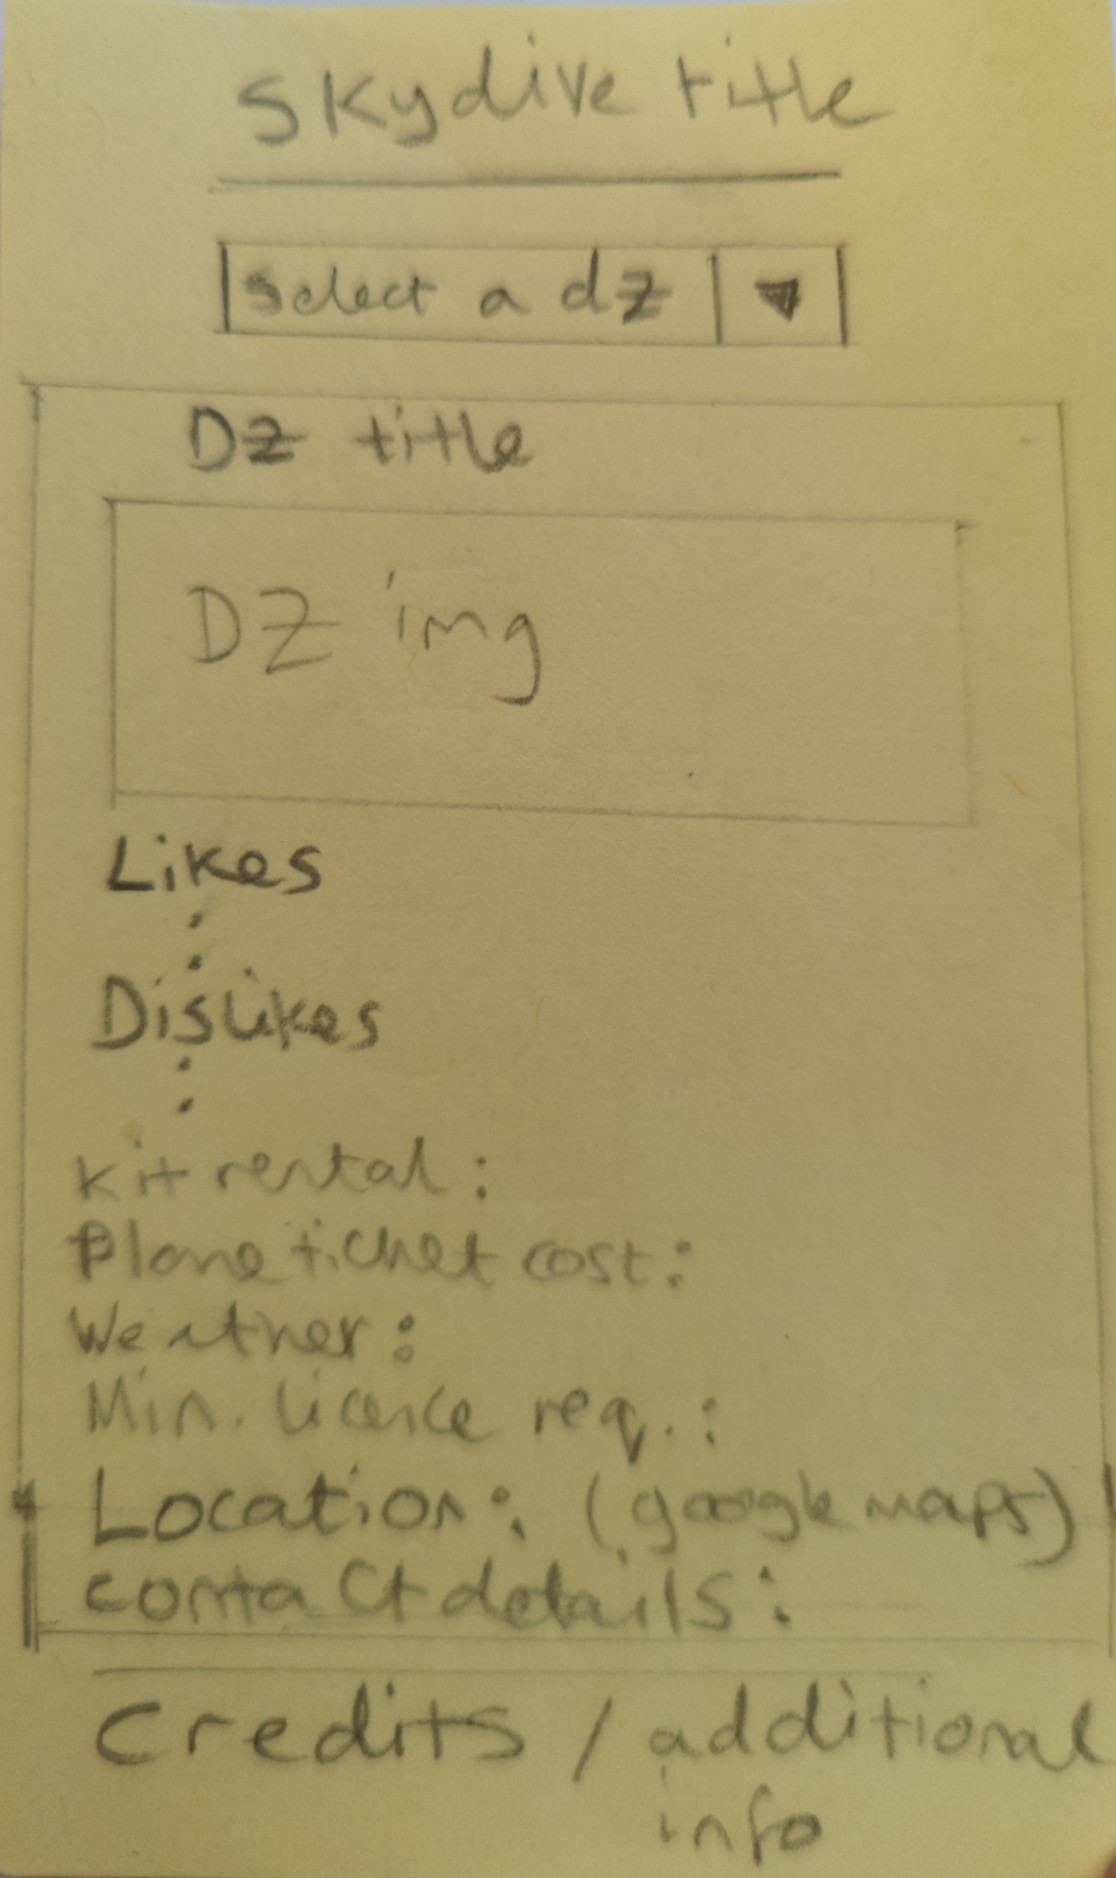 Skydive title
Select a dz
Dz title
DZ img
Likes
Dislikes
Kit rental:
Plane ticket cost:
Weather:
Min. licence req.:
Location: (google maps)
contact details:
Credits / additional
info